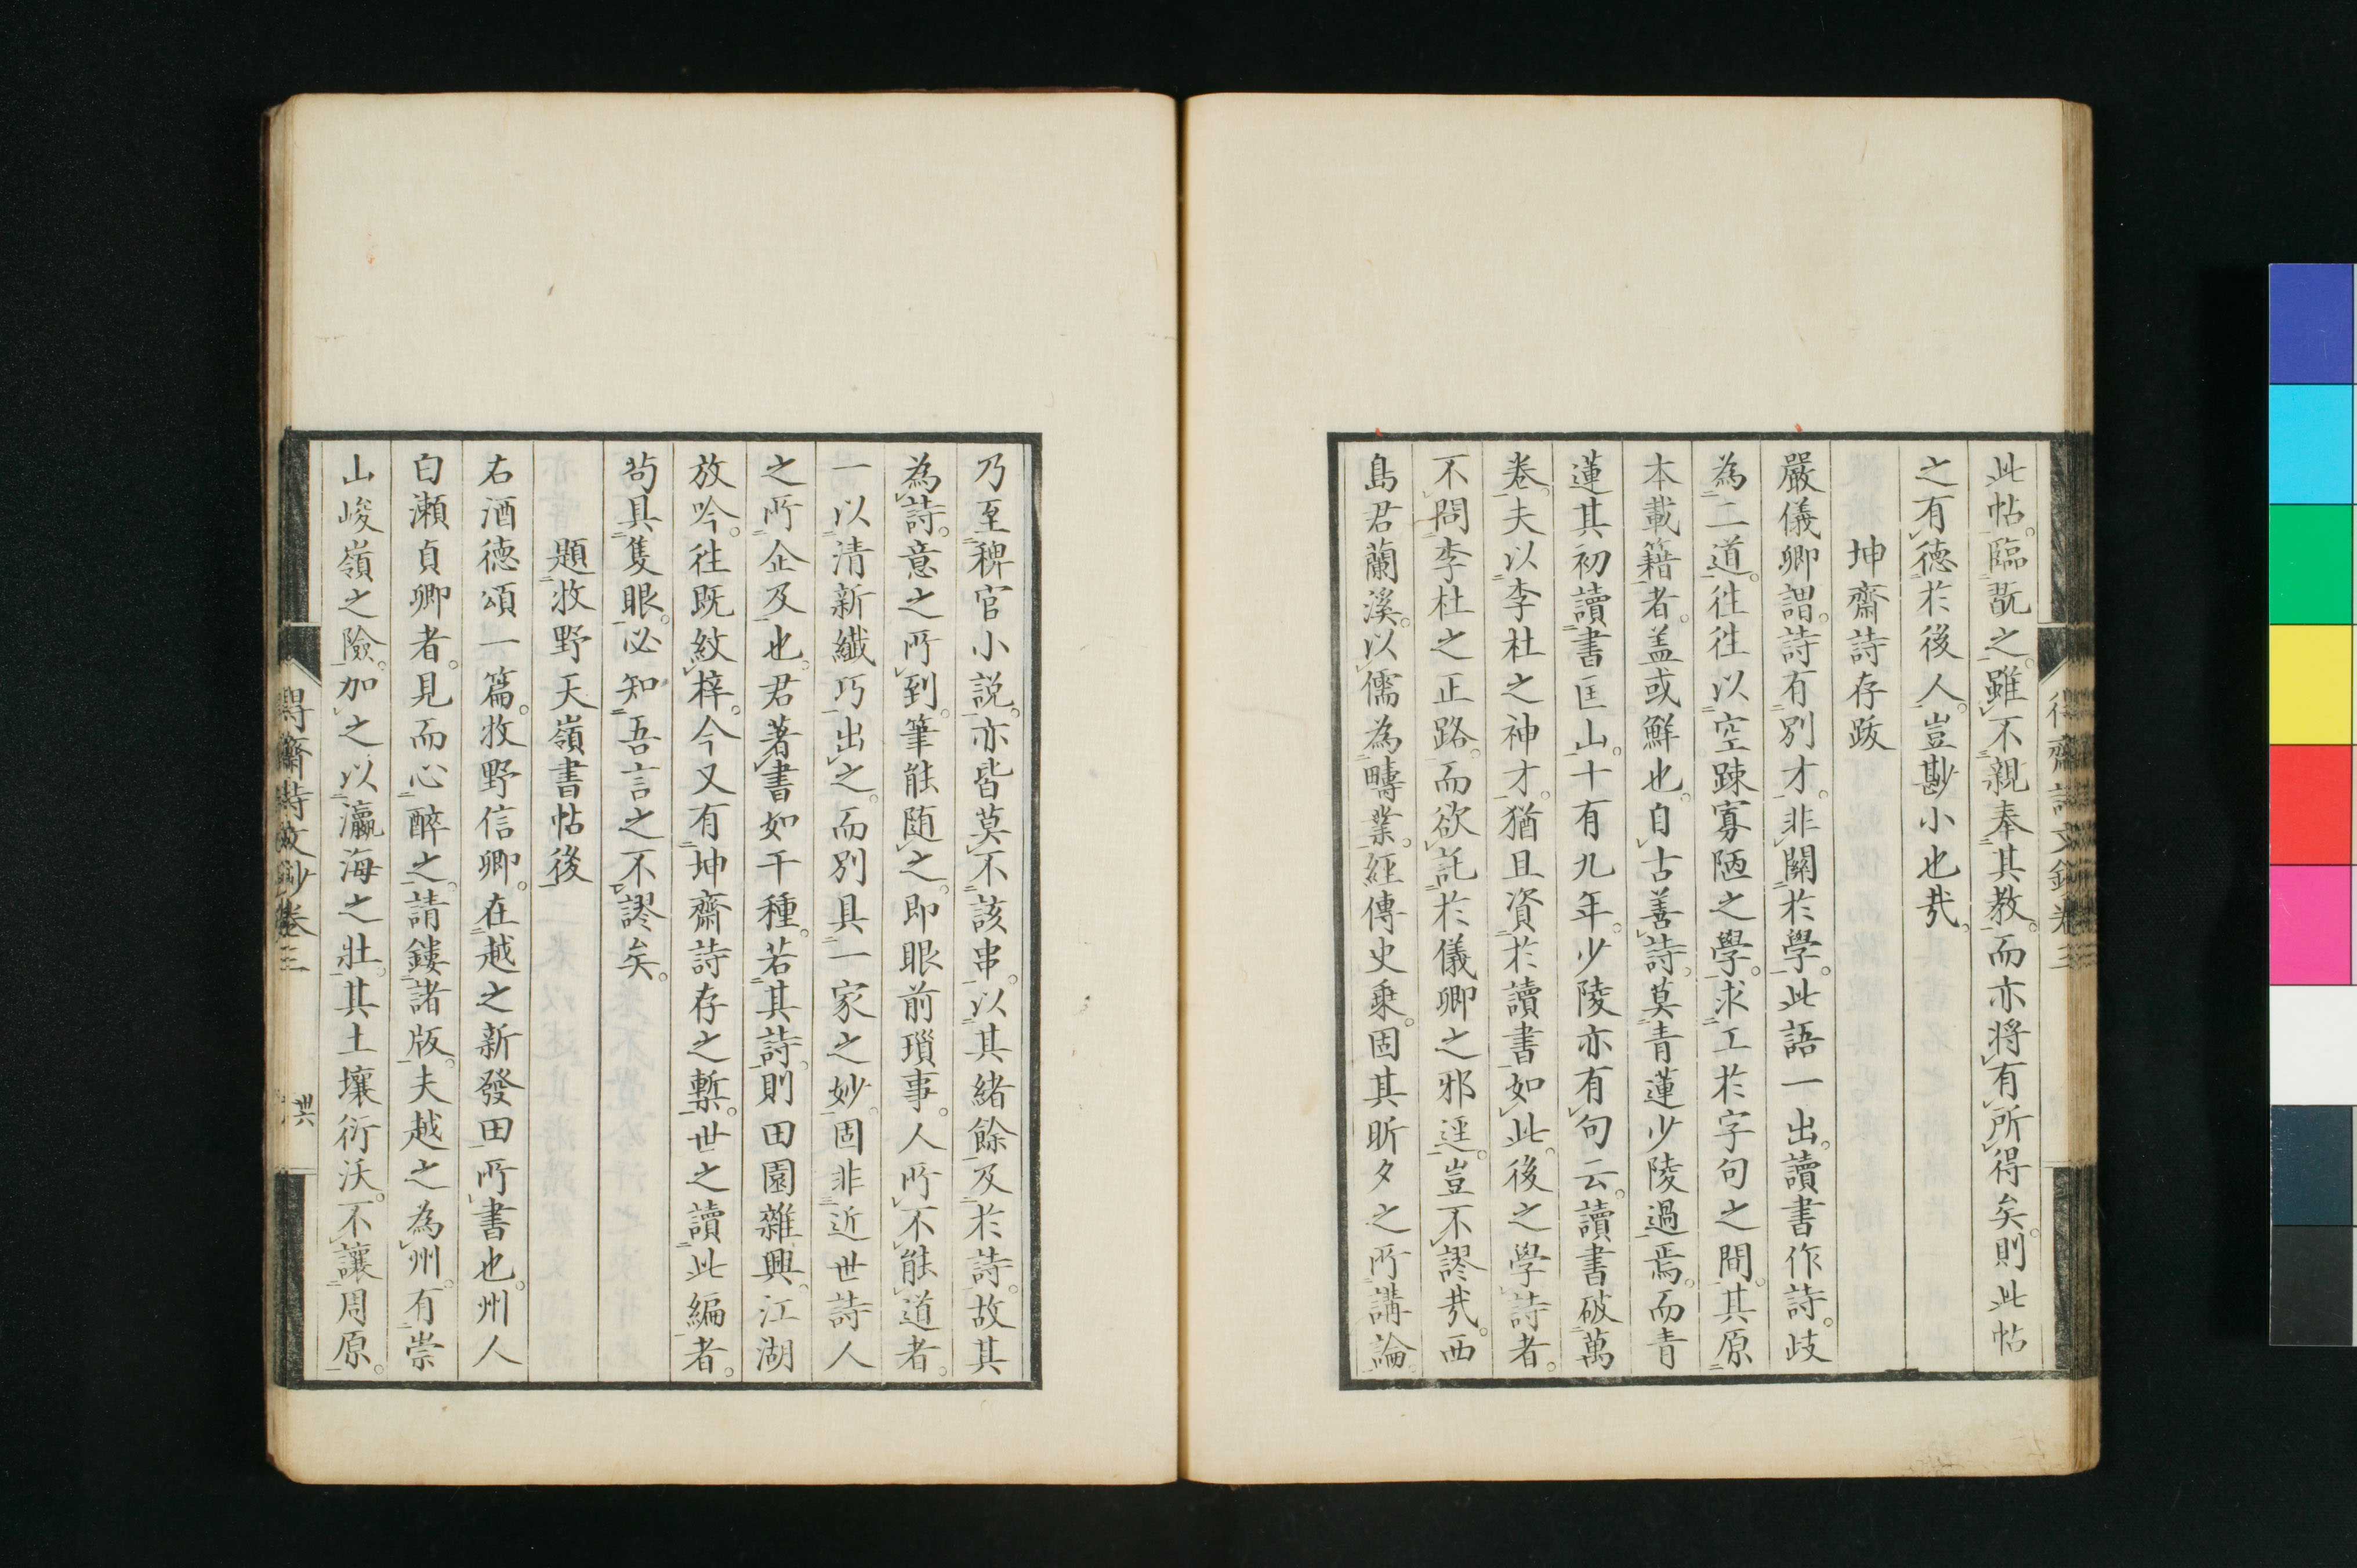 此帖。臨翫之。雖不親奉其教。而亦將有所得矣。則此帖
之有德於後人。豈尠小也哉。
坤齋詩存跋
嚴儀卿謂。詩有別才。非關於學。此語一出。讀書作詩。歧
為二道。往往以空踈寡陋之學。求工於字句之間。其原
本載籍者。蓋或鮮也。自古善詩。莫青蓮少陵過焉。而青
蓮其初讀書匡山。十有九年。少陵亦有句云。讀書破萬
卷。夫以李杜之神才。猶且資於讀書如此。後之學詩者。
不問李杜之正路。而欲託於儀卿之邪逕。豈不謬哉。西
島君蘭溪。以儒為疇業。經傳史乘。固其昕夕之所講論。
乃至稗官小說。亦皆莫不該串。以其緒餘。及於詩。故其
為詩。意之所到。筆能随之。即眼前瑣事。人所不能道者。
一以清新纖巧出之。而別具一家之妙。固非近世詩人
之所企及也。君著書如干種。若其詩。則田園雜興。江湖
放吟。往既紋梓。今又有坤齋詩存之槧。世之讀此編者。
苟具隻眼。必知吾言之不謬矣。
題牧野天嶺書帖後
右酒德頌一篇。牧野信卿。在越之新發田所書也。州人
白瀬貞卿者。見而心醉之。請鏤諸版。夫越之為州。有崇
山峻嶺之險。加之以瀛海之壯。其土壤衍沃。不讓周原。
得齋詩文鈔卷三